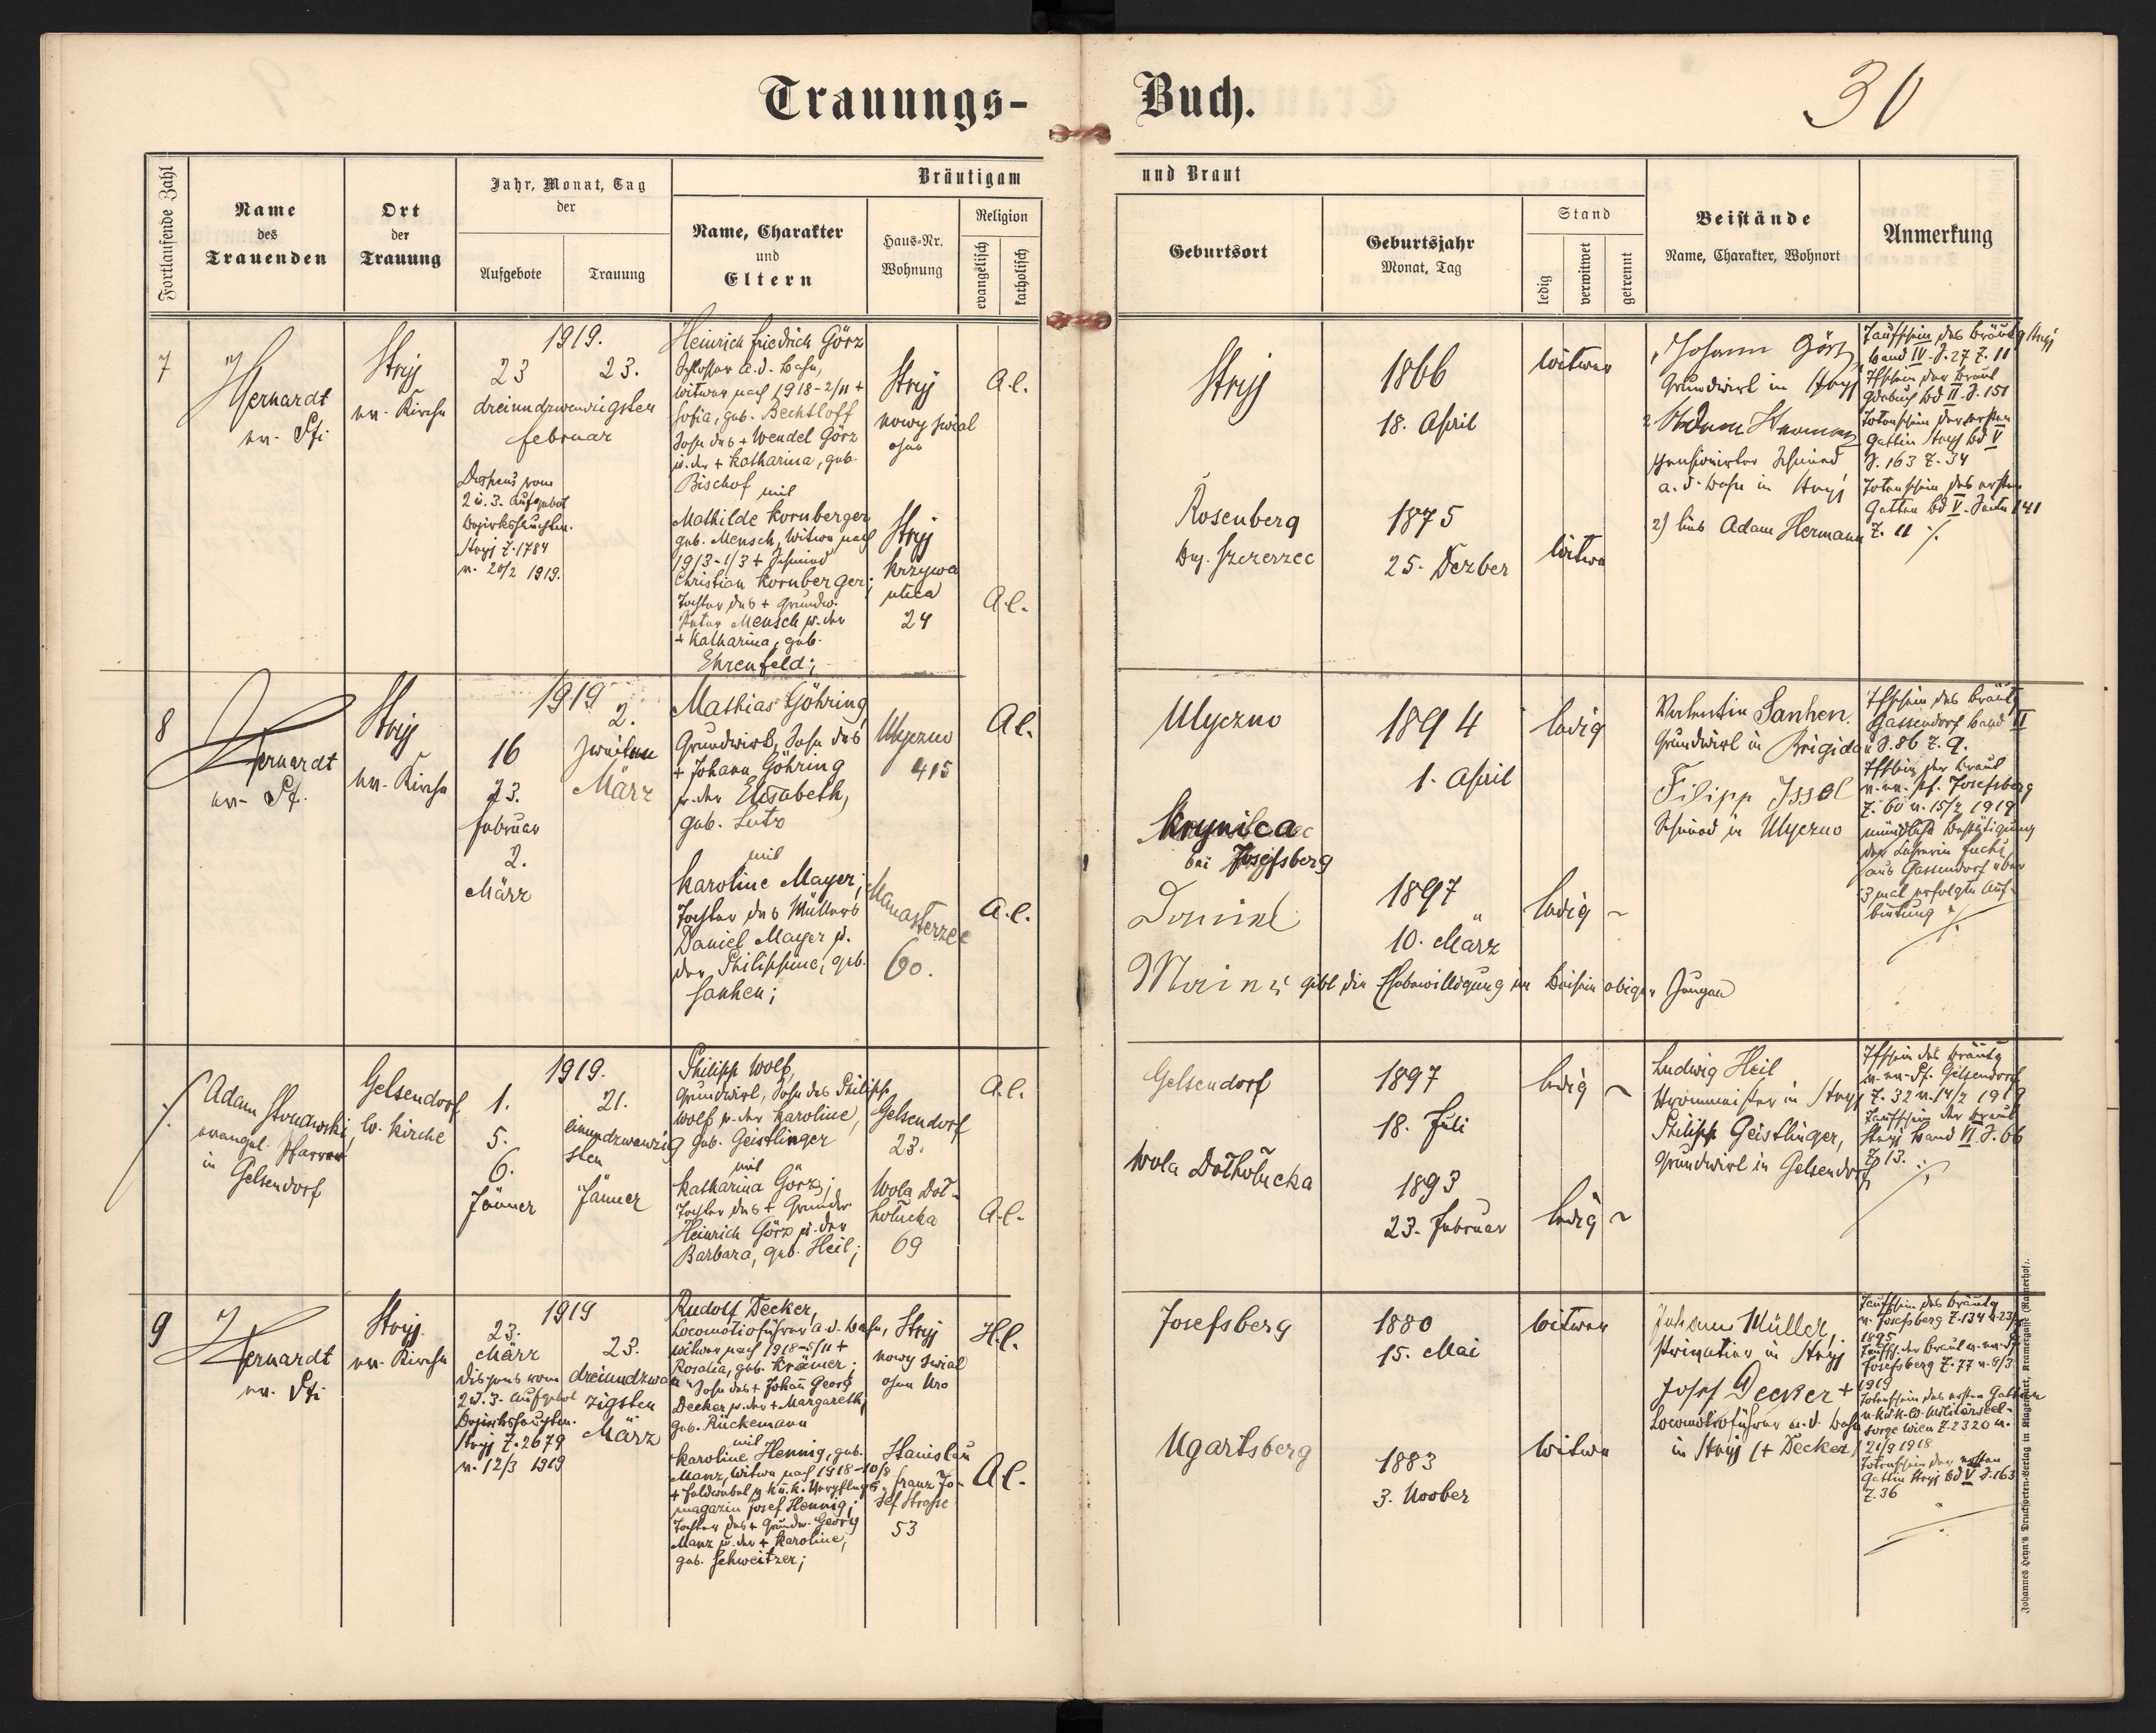 Trauungs-Buch.
30
Fortlaufende Zahl
Name
des
Trauenden
Ort
der
Trauung
Jahr, Monat, Tag
der
Aufgebote
Trauung
Bräutigam und Braut
Name, Charakter
und
Eltern
Haus-Nr.
Wohnung
Religion
evangelisch
katholisch
Geburtsort
Geburtsjahr
Monat, Tag
Stand
ledig
verwitwet
getrennt
Beistände
Name, Charakter, Wohnort
Anmerkung
7
Stryj
ev. Kirche
1919.
23
23.
dreiundzwanzigsten
Februar
Dispens vom
2 u. 3. Aufgebot
Stryj Z. 1784
v. 20/2 1919.
Heinrich Friedrich Görz
Schlosser a. d. Bahn,
Witwer nach 1918-2/11 +
Sofia, geb. Bechtloff
Sohn des + Wendel Görz
u. der + Katharina, geb.
Bischof
mit
Mathilde Kornberger
geb. Mensch, Witwe nach
1913-1/3 + Schmied
Christian Kornberger;
Tochter des + Grundw.
Peter Mensch u. der
+ Katharina, geb.
Ehrenfeld;
Stryj
nowy świat
Stryj
Krzywa
ulica
24
A.C.
A.C.
Stryj
1866
18. April
Witwer
Rosenberg
Bez. Szczerzec
1875
25. Dezber
Witwe
Johann Görz
Grundwirt in Stryj
pensionierter Schmied
a. d. Bahn in Stryj
2) lies Adam Hermann
Taufschein des Bräutg Stryj
Band IV. S. 27 Z. 11
Tfschein der Braut
Bd II. S. 151
Totenschein der ersten
Gattin Stryj Bd V
S. 163 Z. 34
Totenschein des ersten
Gatten Bd V. Seite 141
Z. 11 ./.
8
ev. Pf.
Stryj
ev. Kirche
1919
16
23.
Februar
2.
März
2.
zweiten
März
Mathias Göhring
Grundwirt, Sohn des
+ Johann Göhring
u. der Elisabeth,
geb. Lutz
mit
Karoline Mayer;
Tochter des Müllers
Daniel Mayer u.
der Philippine, geb.
Sanhen;
Ulyczno
415
Manasterzec
60.
A.C.
A.C.
Ulyczno
1894
1. April
ledig
Krynica
bei Josefsberg
1897
10. März
ledig
gibt die Ehebewilligung im Beisein obiger Zeugen
Valentin Sanhen.
Grundwirt in Brigidau
Filipp Issel
Schmied in Ulyczno
Tfschein des Bräut
Gassendorf Band II
S. 86 Z. 9.
Tfschein der Braut
v. ev. Pf. Josefsberg
Z. 60 v. 15/2 1919
mündliche Bestätigung
der Lehrerin Fuchs
aus Gassendorf über
3 mal erfolgte Auf-
bietung ./.
./.
Adam Stonawski,
evangel. Pfarrer
in
Gelsendorf
Gelsendorf
ev. Kirche
1919.
1.
5.
6.
Jänner
21.
einundzwanzig
sten
Jänner
Philipp Wolf,
Grundwirt, Sohn des Philipp
Wolf u. der Karoline,
geb. Geistlinger
mit
Katharina Görz;
Tochter des + Grundw.
Heinrich Görz u. der
Barbara, geb. Heil;
Gelsendorf
23.
Wola Doł-
hołucka
69
A.C.
A.C.
Gelsendorf
1897
18. Juli
ledig
Wola Dołhołucka
1893
23. Februar
ledig
Ludwig Heil
in Stryj
Philipp Geistlinger,
Grundwirt in Gelsendorf
Tfschein des Bräutg
v. ev. Pf. Gelsendorf
Z. 32 v. 14/2 1919
Taufschein der Braut
Stryj Band VI. S. 66
Z. 13. ./.
9
Stryj.
ev. Kirche
1919
23.
März
Dispens vom
2 u. 3. Aufgebot
Stryj Z. 2679
v. 12/3 1919
23.
dreiundzwan
zigsten
März
Rudolf Decker,
Locomotivführer a. d. Bahn,
Witwer nach 1918-5/11 +
Rosalia, geb. Krämer;
Sohn des + Johann Georg
Decker u. der + Margareth,
geb. Rückemann
mit
Karoline Hennig, geb.
Manz, Witwe nach 1918-10/8
+ Feldwebel u. K. u. K. Verpflegs-
magazin Josef Hennig;
Tochter des + Grundw. Georg
Manz u. der + Karoline,
geb. Schweitzer;
Stryj
nowy świat
ohne Nro
Stanislau
Franz Jo-
sef Strasse
53
H.C.
A.C.
Josefsberg
1880
15. Mai
Witwer
Ugartsberg
1883
3. Novber
Witwe
Johann Müller,
in Stryj
Josef Decker +
Locomotivführer a. d. Bahn
in Stryj (+ Decker)
Taufschein des Bräutg
v. Josefsberg
1895
Josefsberg Z. 77 v. 8/3
1919
Totenschein des ersten Gatten
sorge Wien Z. 2320 v.
21/9 1918
Totenschein der ersten
Gattin Stryj Bd V S. 163
Z. 36
Johannes Heyn's Drucksorten-Verlag in Klagenfurt, Kramergasse (Rainerhof).